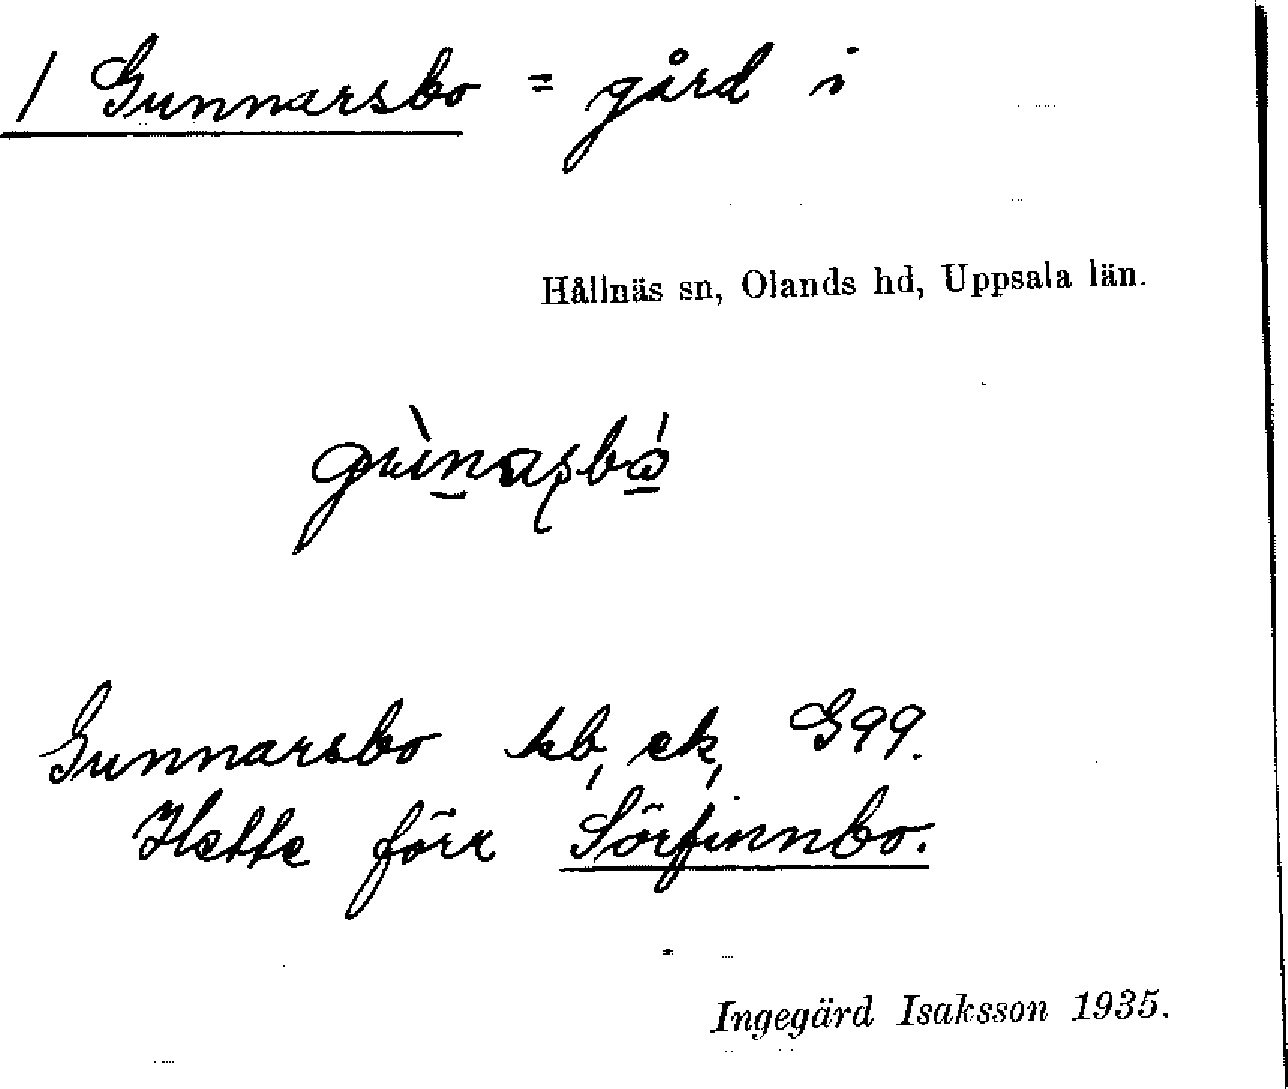 / Gunnarsbo = gård i
Hållnäs sn, Olands hd, Uppsala län.
gùnasbó
Gunnarsbo kb, ek, G99.
Hette förr Sörfinnbo.
Ingegärd Isaksson 1935.